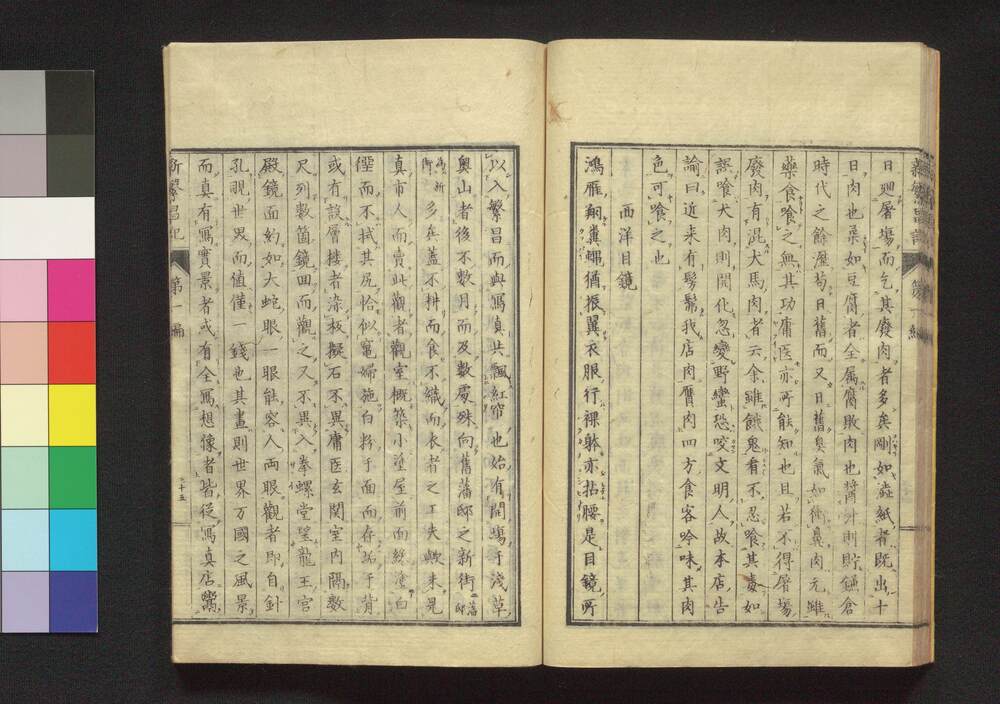 日廻屠場而乞其廢肉者多矣剛如澁紙者既出十
日肉也柔如豆腐者全属腐敗肉也醬汁則貯鎌倉
時代之餘瀝苟日舊而又日舊臭氣如衝鼻肉元雖
藥食喰之無其功庸医亦所能知也且若不得屠場
廢肉有混犬馬肉者云余雖餓鬼看不忍喰其毒如
誤喰犬肉則開化忽變野蠻恐咬文明人故本店告
諭曰近来有髣髴我店肉贋肉四方食客吟味其肉
色可喰之也
西洋目鏡
鴻雁翔糞蛆猶振翼衣服行裸躰亦拈腰是目鏡所
以入繁昌而與寫真共飄紅帘也始有開場于浅草
奥山者後不数月而及数處殊向舊藩邸之新街
藩邸為新街
多矣蓋不耕而食不織而衣者之工夫歟来晃
真市人而賣此觀者觀室概築小塗屋前面經塗白
堊而不拭其尻恰似竈婦施白粉于面而存垢于背
或有設層樓者染板擬石不異庸医玄関室内隔数
尺列数箇鏡面而觀之又不異入拳螺堂望龍王宮
殿鏡面約如大蛇眼一眼能容人両眼觀者即自針
孔覗世界而値僅一錢也其畫則世界万國之風景
而真有寫實景者或有全寫想像者皆從寫真店鬻
新繁昌記
第一編
三十五